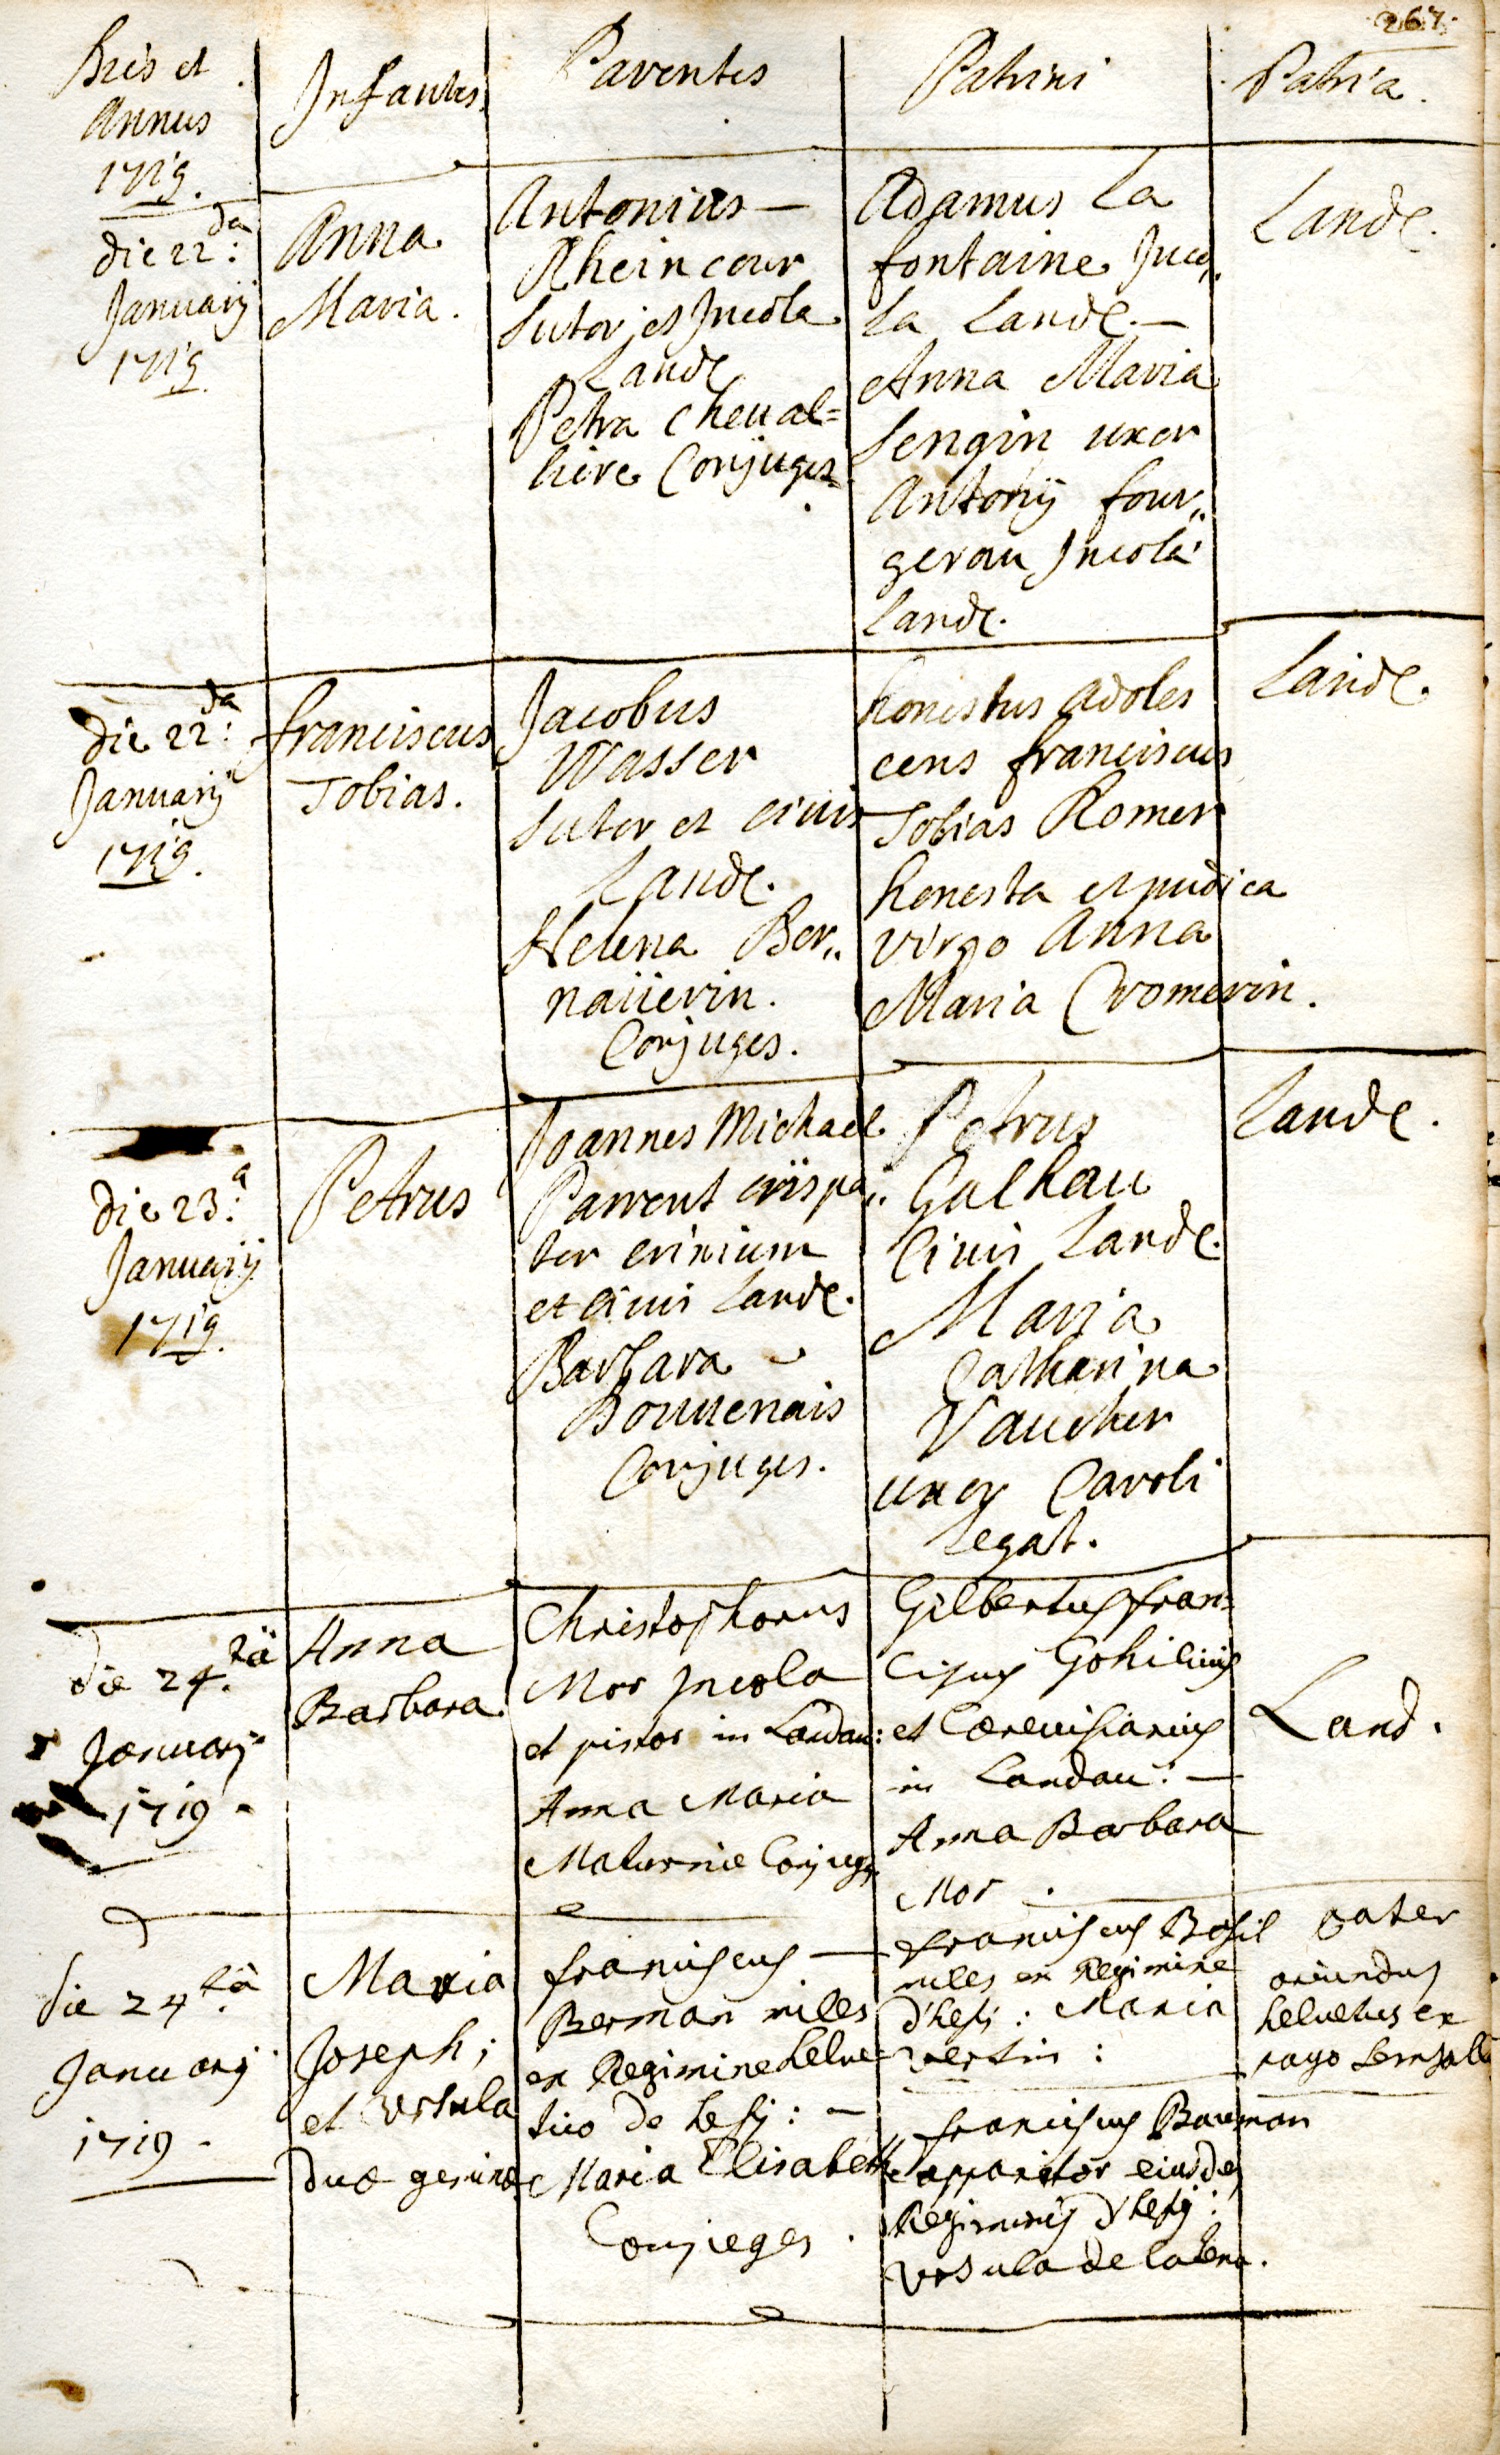 267.
Dies et
Annus
1719.
Infantes
Parentes
Patrini
Patria.
die 22da:
Januarij
1719.
Anna
Maria.
Antonius —
Rheincour
Sutor et Incola
Landℓ
Petra cheual=
liere Conjuges
Adamus La
fontaine Inco„
la Landℓ. —
Anna Maria
Sengin uxor
Antonij four„
gerau Incola
Landℓ.
Landℓ.
die 22da:
Januarij
1719.
franciscus
Tobias.
Jacobus
Wasser
Sutor et ciuis
Landℓ.
Helena Ber„
naiierin.
Conjuges.
honestus adoles
cens franciscus
Tobias Romer
honesta et pudica
virgo Anna
Maria Cromerin.
Landℓ.
die 23.a
Januarij
1719.
Petrus
Joannes Michael
Parrent crispa„
tor crinium
et ciuis Landℓ.
Barbara
Bouuenais
Conjuges.
Petrus
Galhau
Ciuis Landℓ.
Maria
Catharina
Vaucher
uxor Caroli
Legat.
Landℓ.
die 24.tä
Januarij
1719.
Anna
Barbara
Christophorus
Mor Incola
et pistor in Landau:
Anna Maria
Maturnie Conjuges
Gilbertus fran=
ciscus Gohilius
et Cereuisiarius
in Landau: —
Anna Barbara
Mor.
Land.
die 24tä
Januarij
1719.
Maria
Joseph;
et Vrsula
duæ geminæ
franciscus —
Berman miles
ex Regimine helue=
tico de hesÿ: —
Maria Elisabeth
Conjuges.
franciscus Basil
miles ex Regimine
d'hesÿ: Maria
vertin:
franciscus Bauman
apparitor eiusdem
Regiminis d'hesÿ:
Vrsula de Latena.
pater
oriundus
heluetus ex
pago